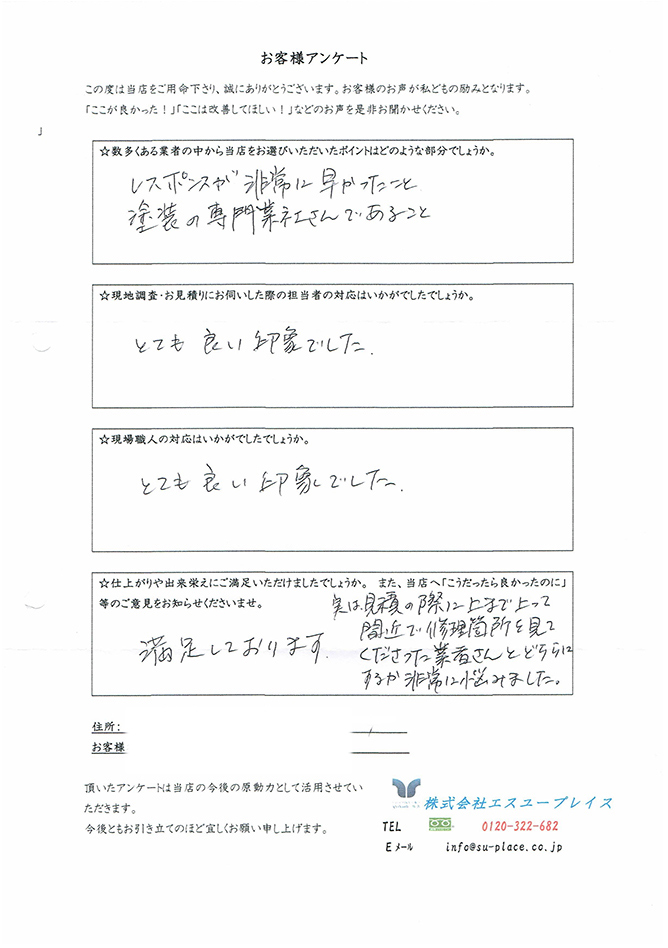 お客様アンケート
この度は当店をご用命下さり、誠にありがとうございます。お客様のお声が私どもの励みとなります。
「ここが良かった！」「ここは改善してほしい！」などのお声を是非お聞かせください。
」
☆数多くある業者の中から当店をお選びいただいたポイントはどのような部分でしょうか。
レスポンスが非常に早かったこと
塗装の専門業社さんであること
☆現地調査・お見積りにお伺いした際の担当者の対応はいかがでしたでしょうか。
とても良い印象でした.
☆現場職人の対応はいかがでしたでしょうか。
とても良い印象でした.
☆仕上がりや出来栄えにご満足いただけましたでしょうか。 また、当店へ「こうだったら良かったのに」
等のご意見をお知らせくださいませ。
満足しております.
実は見積の際に上まで上って
間近で修理箇所を見て
くださった業者さんとどちらに
するか非常に悩みました。
住所:
お客様
頂いたアンケートは当店の今後の原動力として活用させてい
ただきます。
今後ともお引き立てのほど宜しくお願い申し上げます。
株式会社エスユープレイス
TEL 0120-322-682
Eメール info@su-place.co.jp